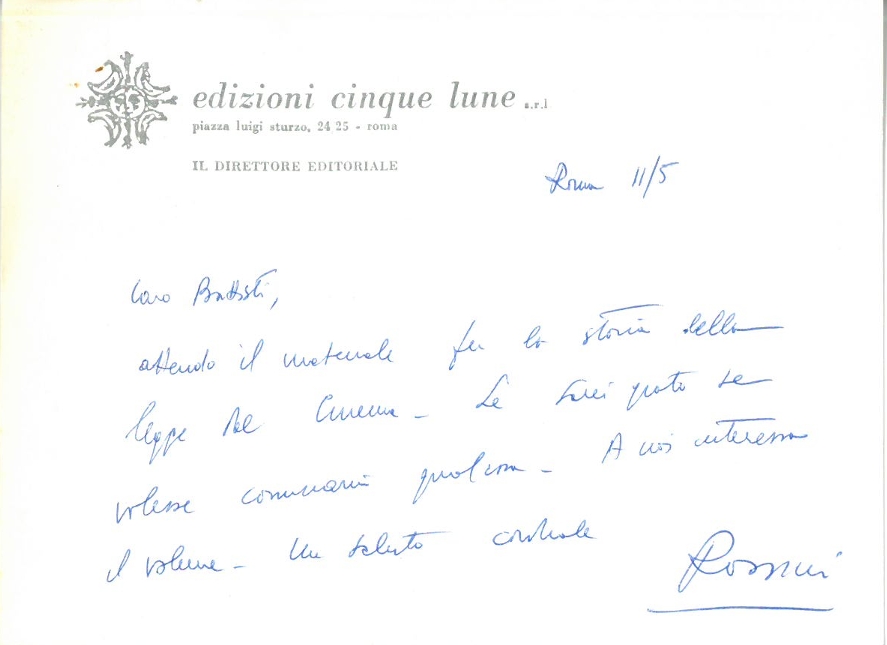 edizioni cinque lune s.r.l
piazza luigi sturzo, 24 25 - roma
IL DIRETTORE EDITORIALE
Roma 11/5
Caro Battisti,
attendo il materiale per la storia della
legge del Cinema - Le sarei grato se
volesse comunicarmi qualcosa - A noi interessa
il volume - Un saluto cordiale
Rossini